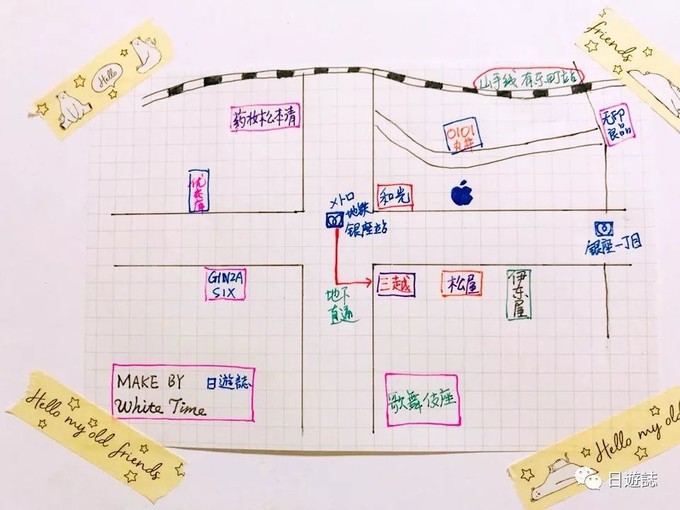 Hello
friends
山手线 有乐町站
药妆松本清
0101
丸井
无印
良品
优衣库
メトロ
地鉄
銀座站
和光
銀座一丁目
GINZA
SIX
地下
直通
三越
松屋
伊东屋
MAKE BY 日遊誌
White Time
歌舞伎座
Hello my old friends
Hello my old
日遊誌